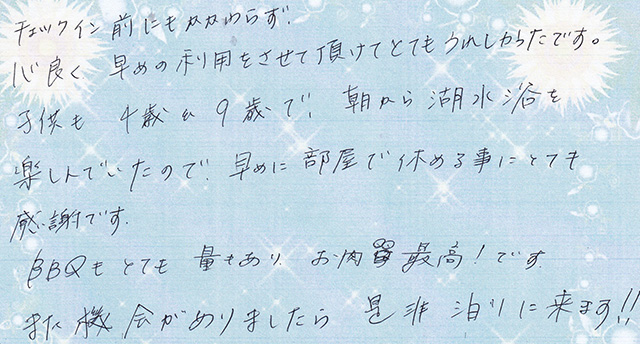 チェックイン前にもかかわらず、
心良く 早めの利用をさせて頂けてとてもうれしかったです。
子供も 4歳&9歳で、朝から湖水浴を
楽しんでいたので、早めに部屋で休める事にとても
感謝です。
BBQもとても 量もあり、お肉 最高!です
また機会がありましたら 是非 泊りに来ます!!